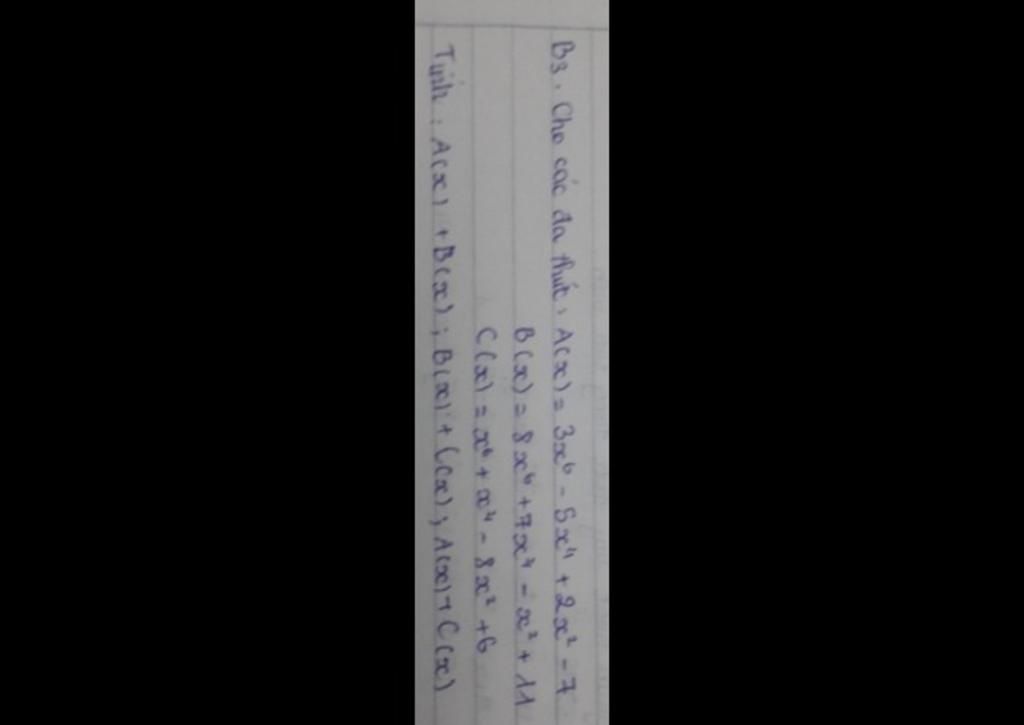 B3. Cho các đa thức: A(x) = 3x⁶ - 5x⁴ + 2x² - 7
B(x) = 8x⁶ + 7x⁴ - x² + 11
C(x) = x⁶ + x⁴ - 8x² + 6
Tính: A(x) + B(x); B(x) + C(x); A(x) + C(x)